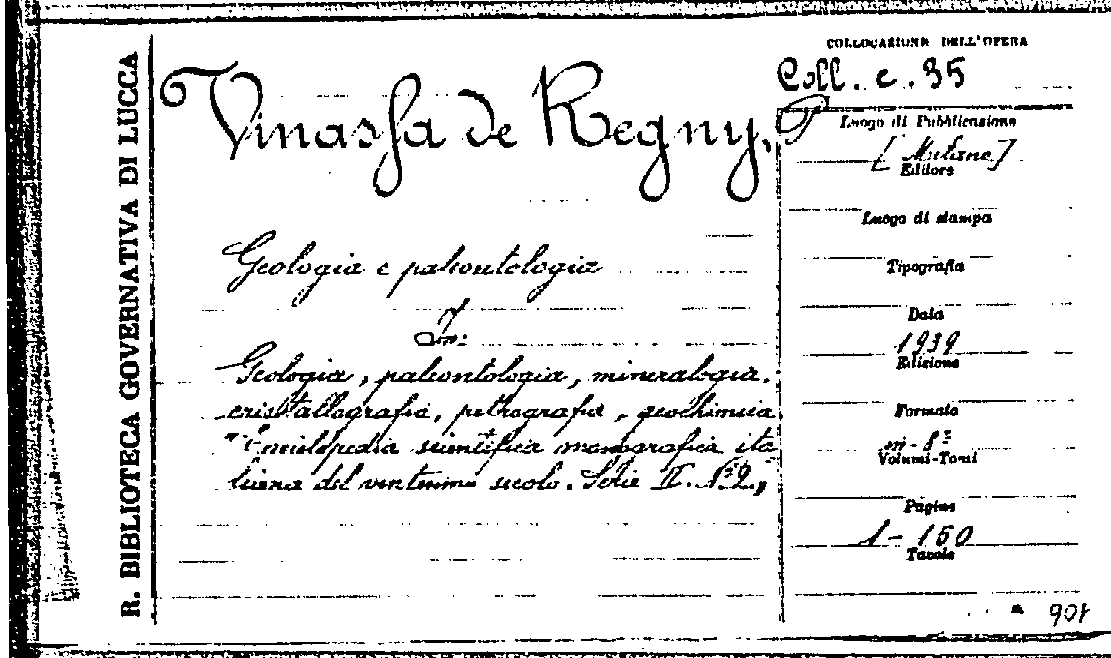 R. BIBLIOTECA GOVERNATIVA DI LUCCA
COLLOCAZIONE DELL'OPERA
Coll. c. 35
Vinassa de Regny, P
Geologia e paleontologia
In:
Geologia, paleontologia, mineralogia,
cristallografia, petrografia, geochimica.
"Enciclopedia scientifica monografica ita
liana del ventesimo secolo. Serie II. N° 2"
Luogo di Pubblicazione
[Milano]
Editore
Luogo di stampa
Tipografia
Data
1939
Edizione
Formato
in-8°
Volumi-Tomi
Pagine
1-150
Tavole
901